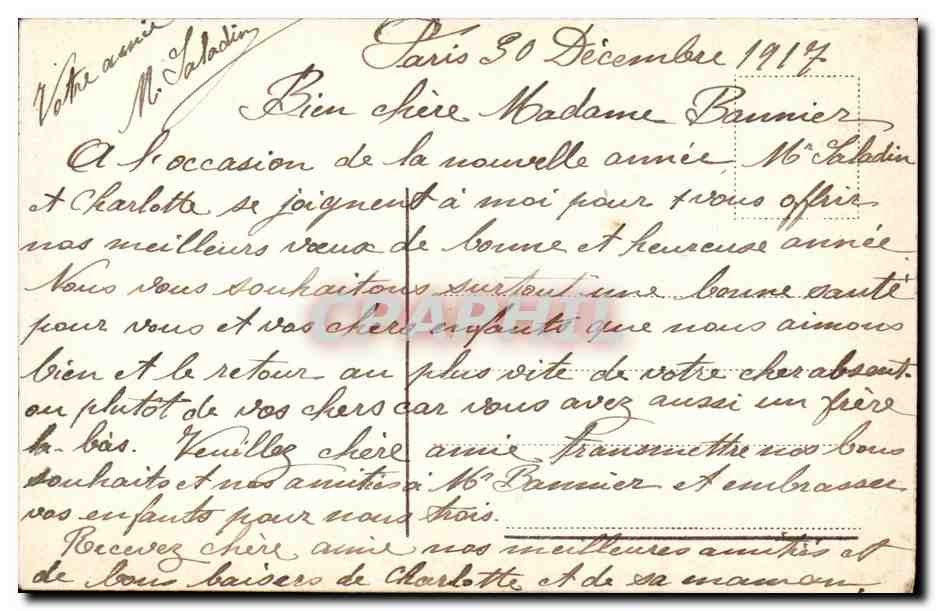 Paris 30 Décembre 1917
Bien chère Madame Bannier
A l'occasion de la nouvelle année Mr Saladin
et Charlotte se joignent à moi pour vous offrir
nos meilleurs vœux de bonne et heureuse année
Nous vous souhaitons surtout une bonne santé
pour vous et vos chers enfants que nous aimons
bien et le retour au plus vite de votre cher absent
ou plutôt de vos chers car vous avez aussi un frère
là-bas. Veuillez chère amie transmettre nos bons
souhaits et nos amitiés à Mr Bannier et embrasser
vos enfants pour nous trois.
Recevez chère amie nos meilleures amitiés et
de bons baisers de Charlotte et de sa maman,
Votre amie
M. Saladin
CPAPHIL